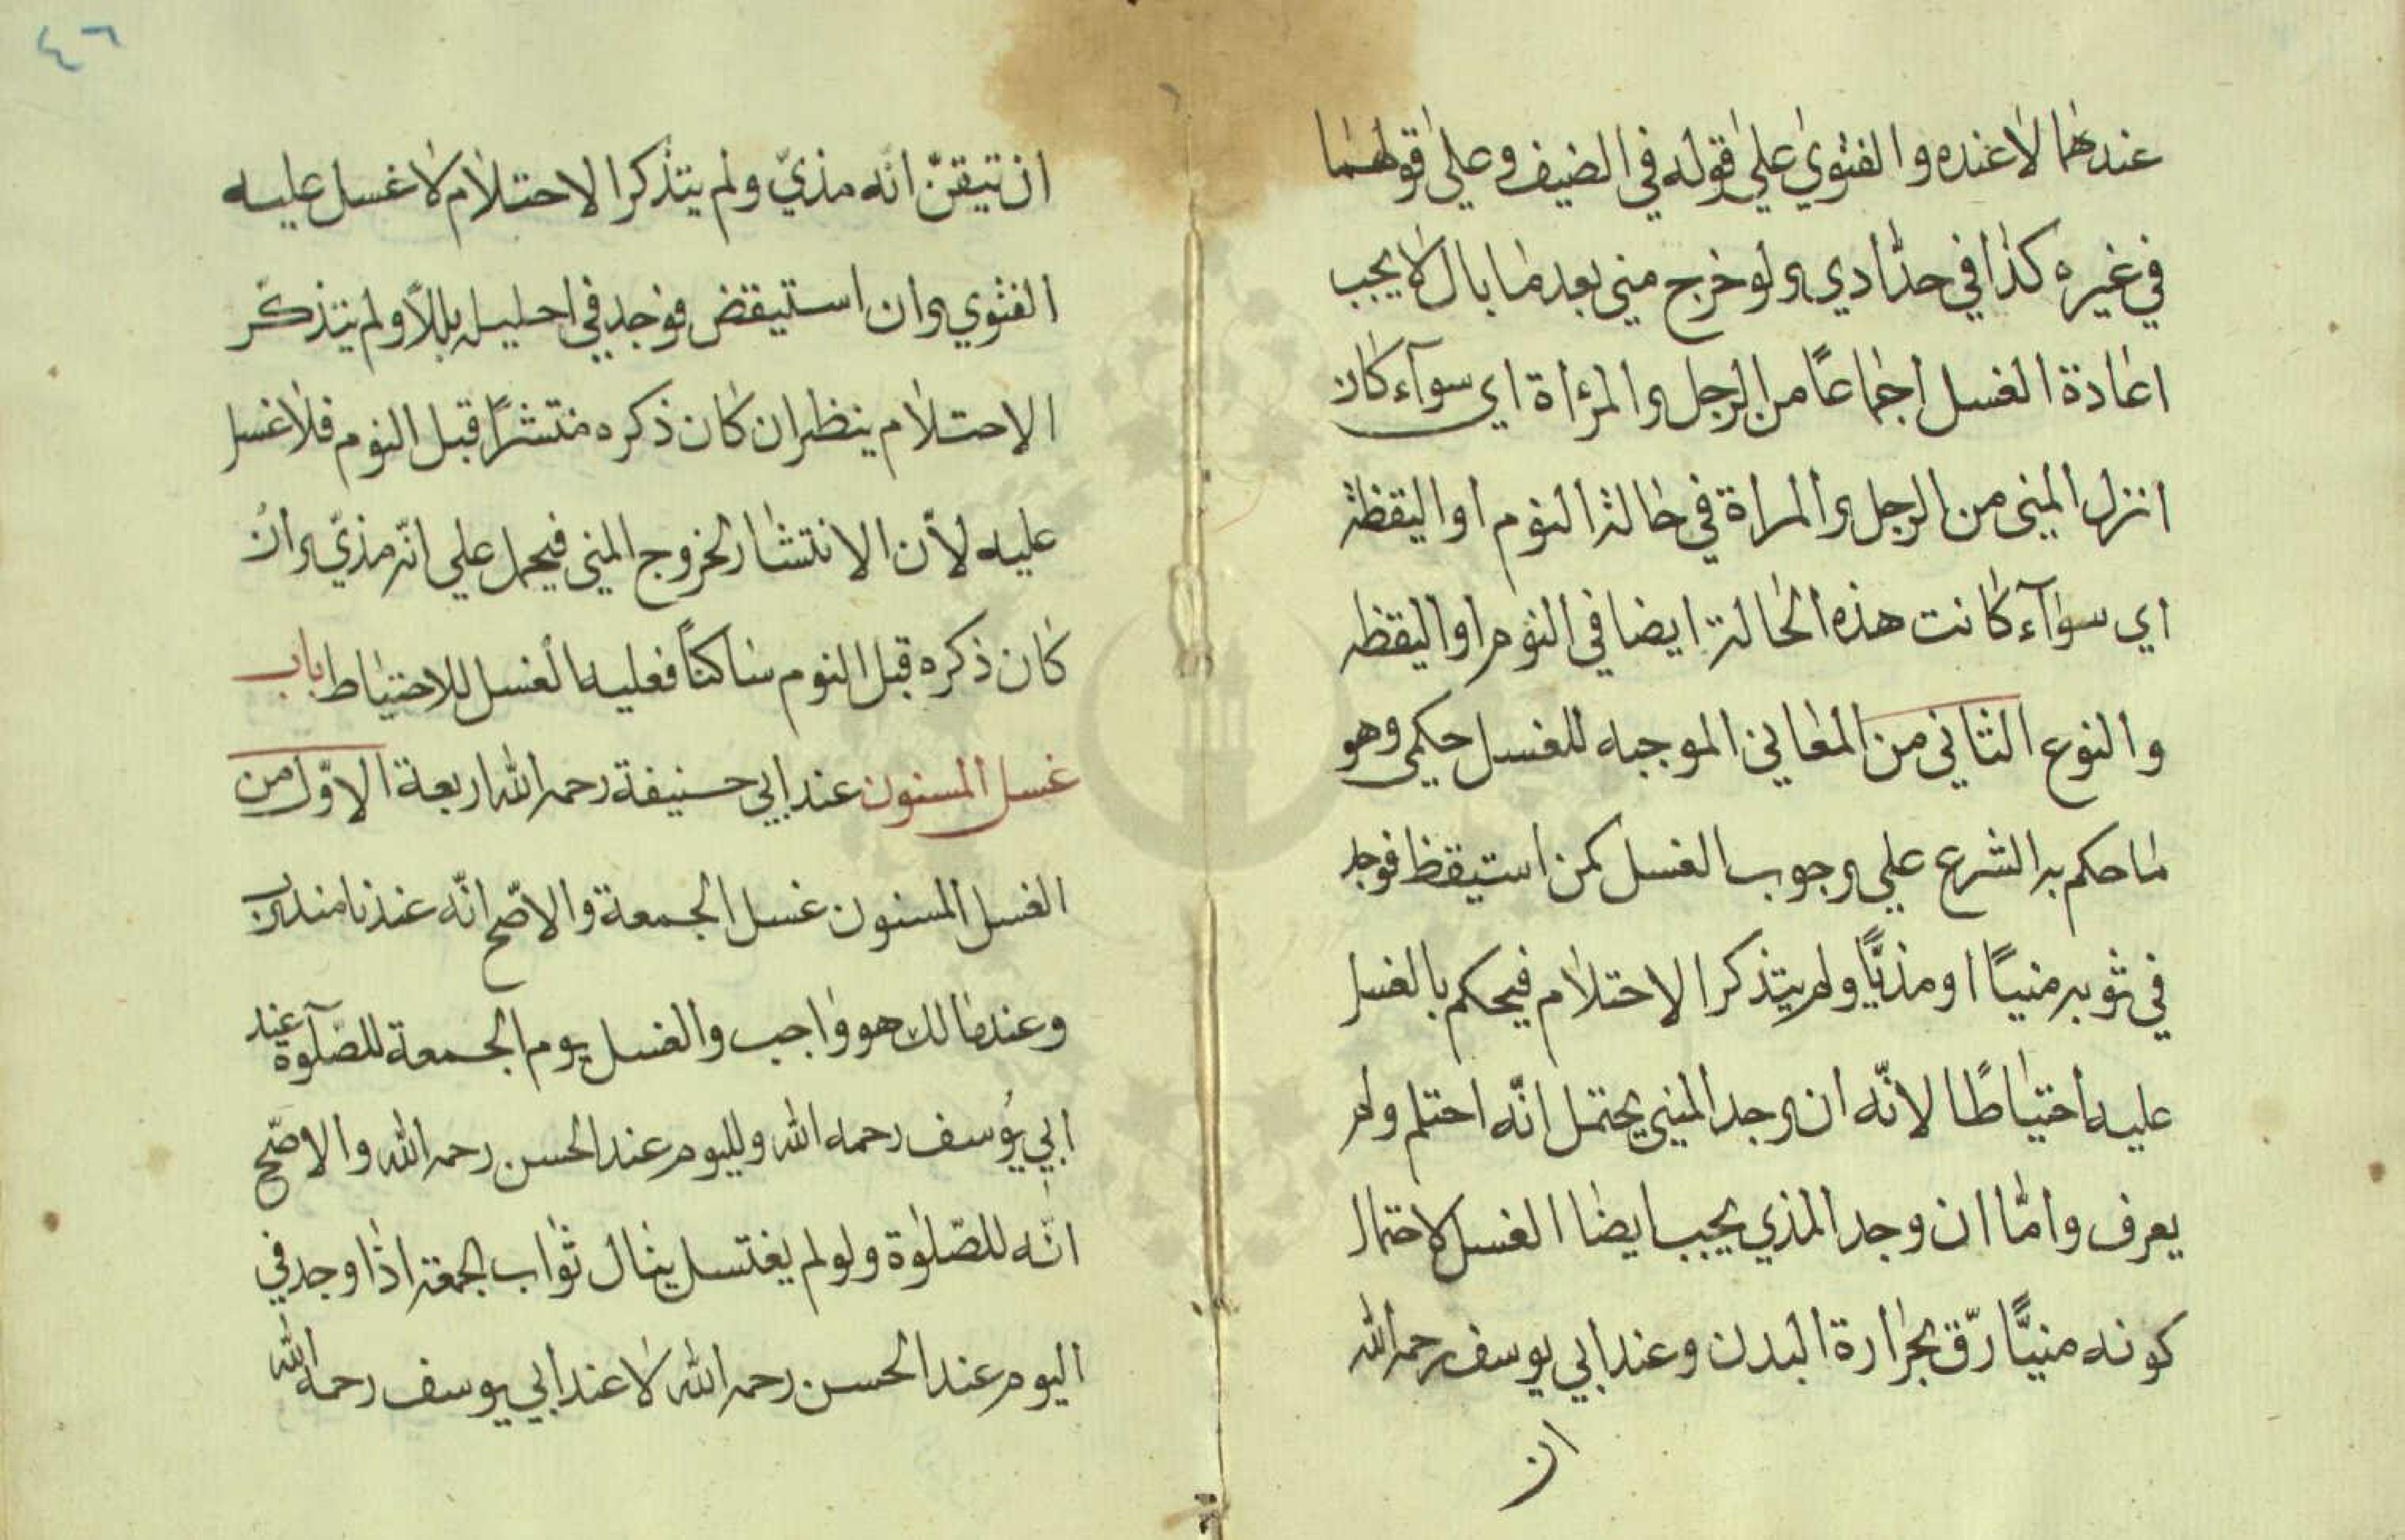 عندهما لا عنده والفتوي علي قوله في الضيف وعلي قولهما
في غيره كذا في حدّادي ولو خرج مني بعد ما بال لا يجب
اعادة الغسل اجماعًا من الرجل والمرٔاة اي سوآء كان
انزل المني من الرجل والمراة في حالة النوم او اليقظة
اي سوآء كانت هذه الحالة ايضا في النوم او اليقظه
والنوع الثاني من المعاني الموجبه للغسل حكمي وهو
ما حكم به الشرع علي وجوب الغسل كمن استيقظ فوجد
في ثوبه منيًا او مذيًّا ولم يتذكر الاحتلام فيحكم بالغسل
عليه احتياطًا لانّه ان وجد المني يحتمل انّه احتلم ولم
يعرف وامّا ان وجد المذي يجب ايضا الغسل لاحتمال
كونه منيًّا رقّ بحرارة البدن وعند ابي يوسف رحمه الله
ان
٤٦
ان تيقنّ انّه مذيّ ولم يتذكر الاحتلام لا غسل عليه
الفتوي وان استيقض فوجد في احليله بللاً ولم يتذكّر
الاحتلام ينظر ان كان ذكره منتشرًا قبل النوم فلا غسل
عليه لأن الانتشار لخروج المني فيحمل علي انّه مذيّ وان
كان ذكره قبل النوم ساكنًا فعليه الغسل للاحتياط باب
غسل المسنون عند ابي حنيفة رحمه الله اربعة الاوّل من
الغسل المسنون غسل الجمعة والاصّح انّه عندنا مندوب
وعند مالك هو واجب والغسل يوم الجمعة للصّلوٰة عند
ابي يُوسف رحمه الله ولليوم عند الحسن رحمه الله والاصّح
انّه للصّلوٰة ولو لم يغتسل ينال ثواب الجمعة اذا وجد في
اليوم عند الحسن رحمه الله لا عند ابي يوسف رحمه الله